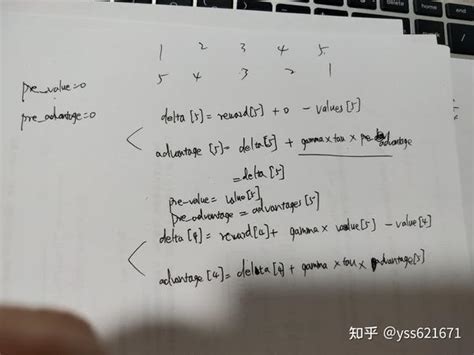 1 2 3 4 5
5 4 3 2 1
pre_value=0
pre_advantage=0
delta [5] = reward[5] + 0 - values[5]
advantage [5] = delta[5] + gamma x tau x pre advantage
= delta [5]
pre-value = value[5]
pre_advantage = advantages [5]
delta [4] = reward[4] + gamma x value[5] - value[4]
advantage [4] = delta [4] + gamma x tau x advantage[5]
知乎 @yss621671